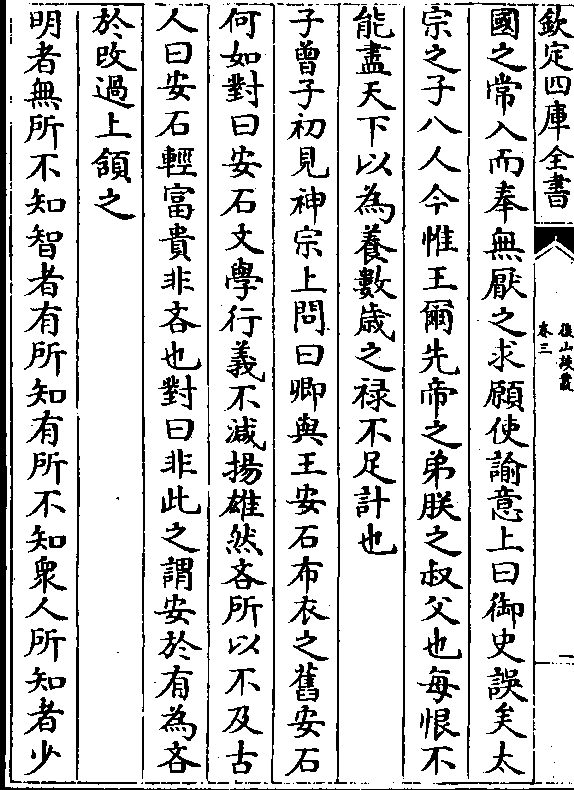 欽定四庫全書
後山談叢
卷三
國之常入而奉無厭之求願使諭意上曰御史誤矣太
宗之子八人今惟王爾先帝之弟朕之叔父也每恨不
能盡天下以為養數歲之禄不足計也
子曾子初見神宗上問曰卿與王安石布衣之舊安石
何如對曰安石文學行義不減揚雄然吝所以不及古
人曰安石輕富貴非吝也對曰非此之謂安於有為吝
於改過上頷之
明者無所不知智者有所知有所不知衆人所知者少